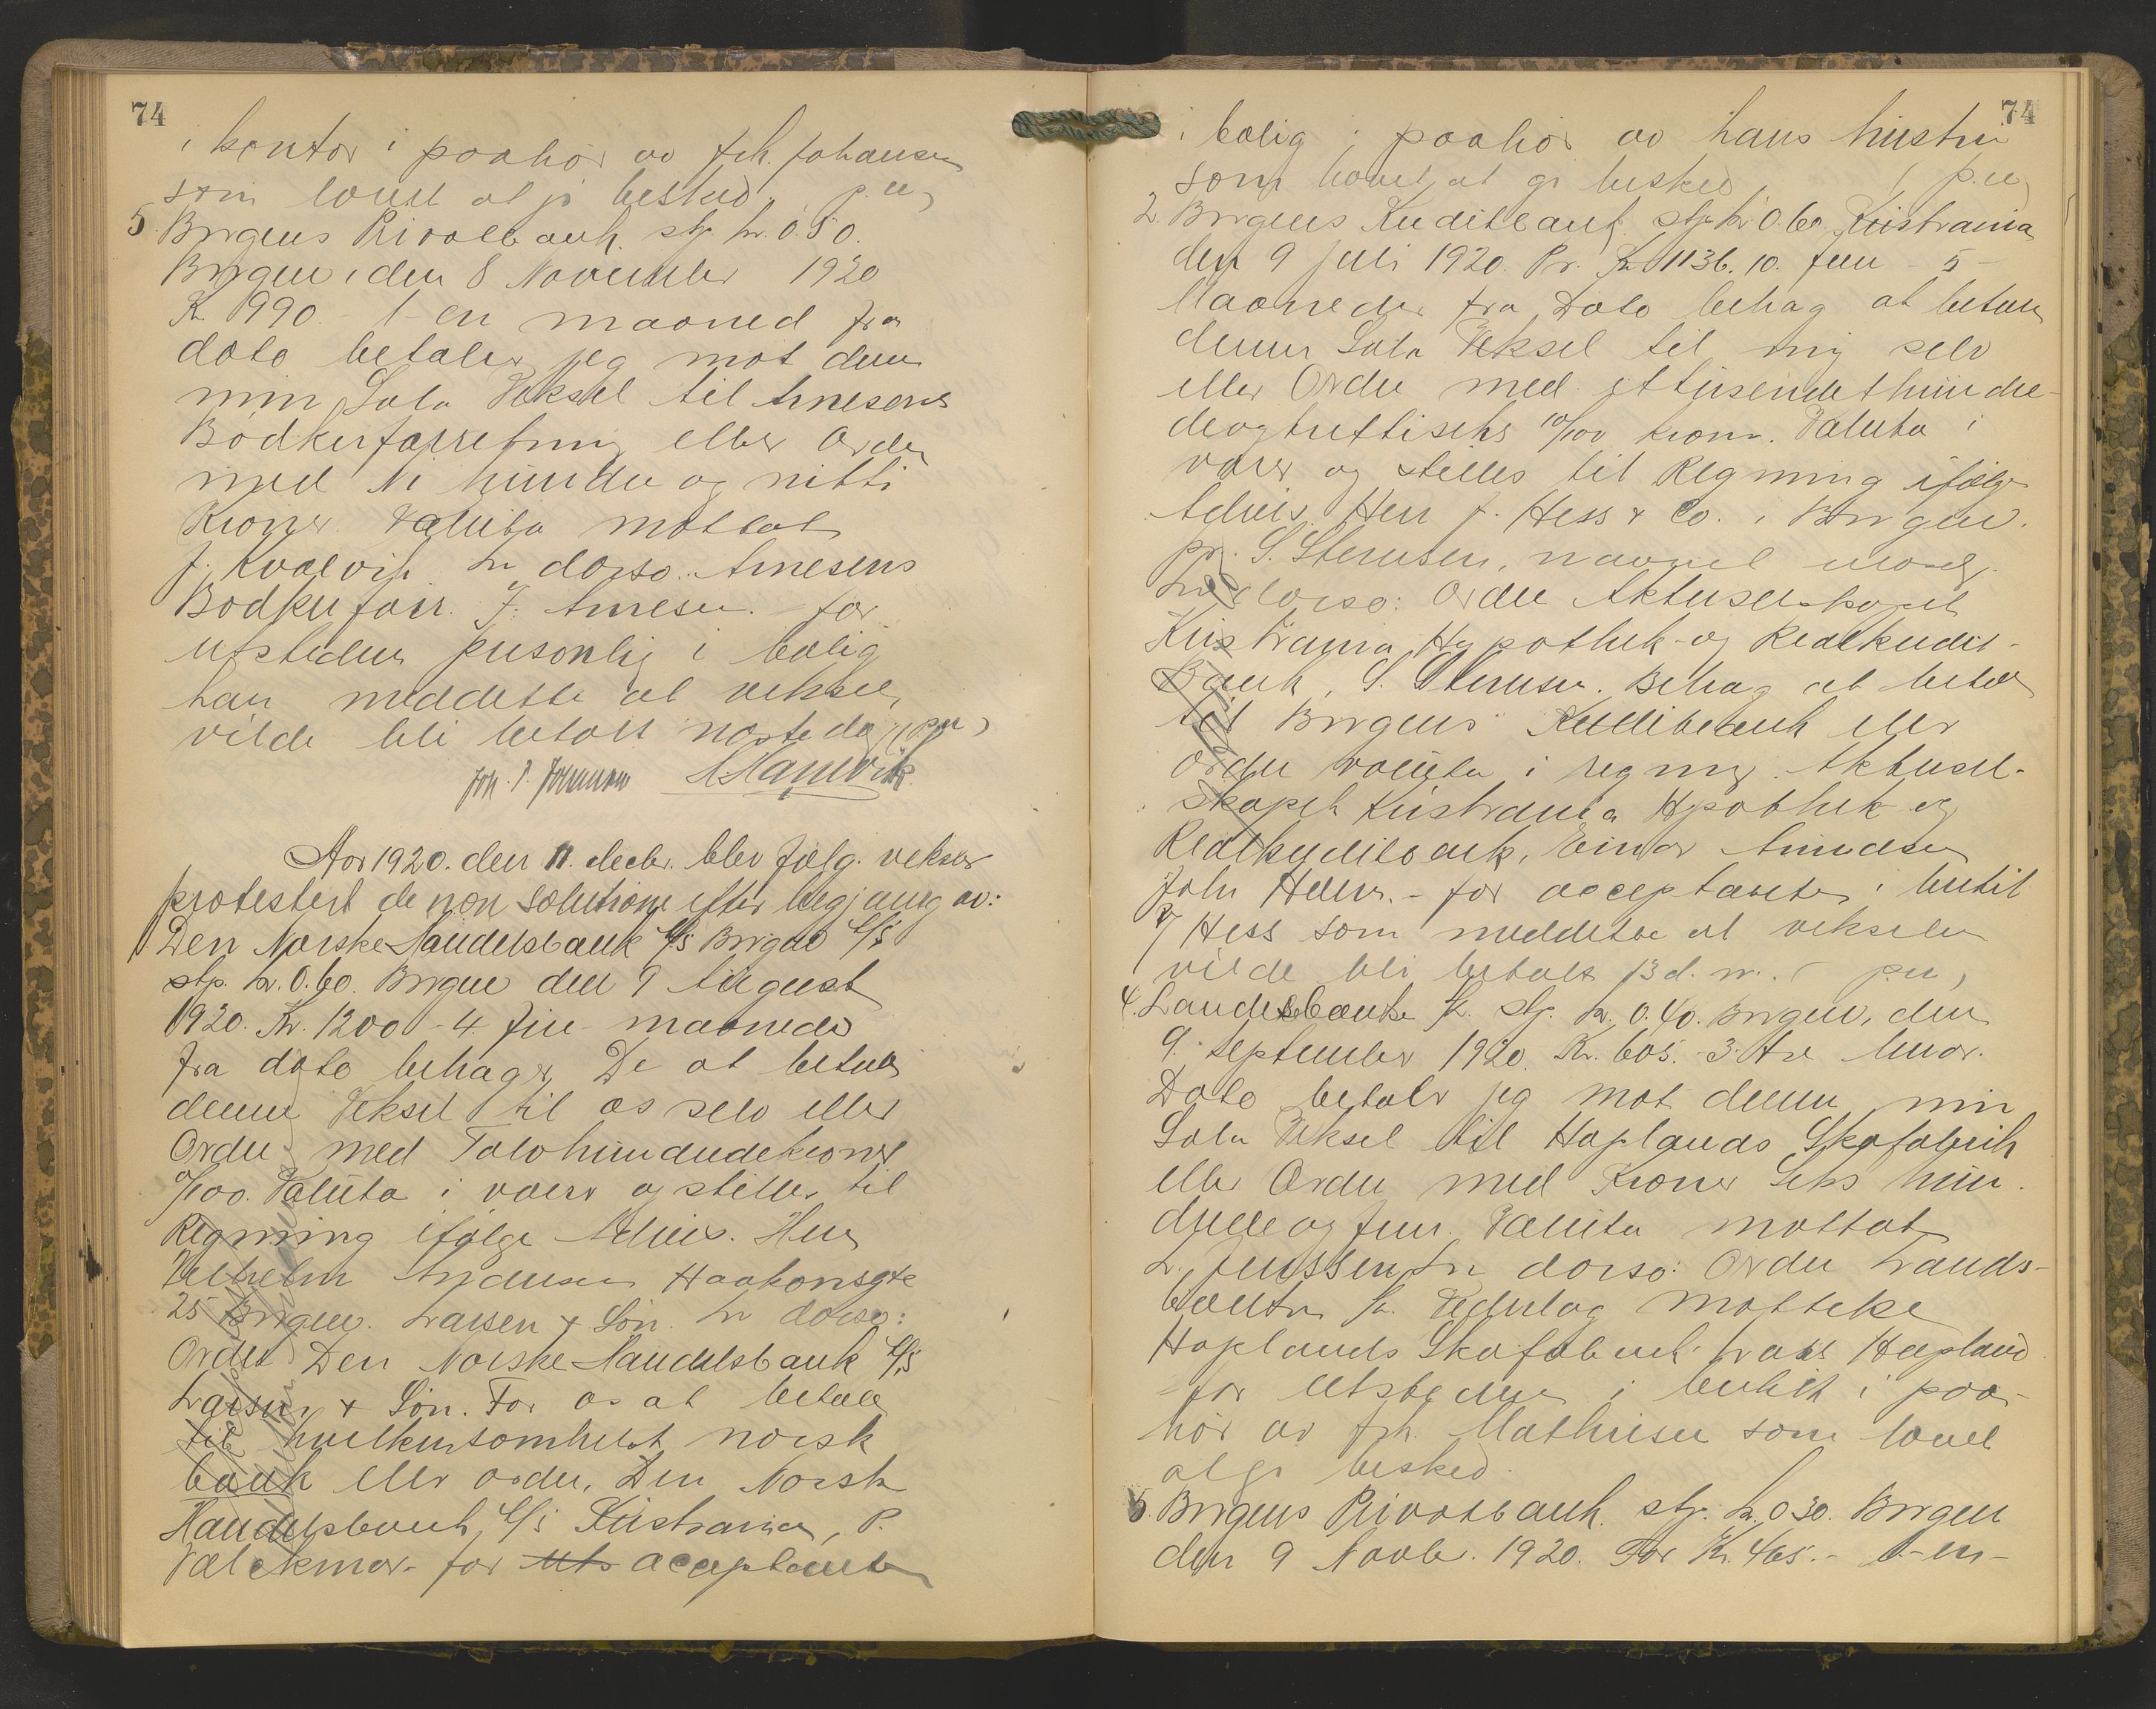 74
i kontor i paahør av frk. Johansen
som lovet at gi besked. p.u.
5. Bergens Privatbank. stp. kr. 0.50.
Bergen, den 8 November 1920
Kr. 990. - 1 - en maaned fra
dato betaler jeg mot denne
min Sola Veksel til Arnesens
Bødkerforretning eller Ordre
med Ni hundre og nitti
Kroner. Valuta mottat
J. Kvalvik. In dorso: Arnesens
Bødkerforr. J. Arnesen. - for
utstederen personlig i bolig
han meddelte at vekselen
vilde bli betalt næste dag (p.u.)
Joh. P. Johnsen
Aar 1920. den 11. decbr. blev følg. veksler
protestert de non solutione efter begjæring av:
1 Den Norske Handelsbank A/S Bergen A/S
stp. kr. 0.60. Bergen den 9 August
1920. Kr. 1200 - 4 fire maaneder
fra dato behager De at betale
denne Veksel til os selv eller
Ordre med Tolvhundredekroner
0/100. Valuta i varer og stilles til
Regning ifølge Advis. Herr
Vilhelm Andersen Haakonsgt.
25 Bergen. Larsen & Søn. In dorso:
Ordre Den Norske Handelsbank A/S
Larsen & Søn. For os at betale
til hvilkensomhelst norsk
bank eller ordre, Den Norske
Handelsbank A/S Kristiania, P.
Valckmar - for Uts acceptanten
74
i bolig i paahør av hans hustru
som lovet at gi besked. (p.u.)
2. Bergens Kreditbank. stp. kr 0.60. Kristiania
den 9 Juli 1920. Pr. Kr 1136.10. Fem - 5 -
Maaneder fra Dato behag at betale
denne Sola Veksel til mig selv
eller Ordre med ettusendethundre-
deogtrettiseks 10/100 kroner. Valuta i
varer og stilles til Regning ifølge
Advis. Herr J. Hess & Co. i Bergen.
pr. S. Stensen,
In dorso: Ordre Aktieselskapet
Kristiania Hypothek- og Realkredit-
Bank, S. Stensen. Behag at betale
til Bergens Kreditbank eller
ordre valuta i regning. Aktiesel-
skapet Kristiania Hypothek- og
Realkreditbank, Einar Amundsen
John Heller. - for acceptanten i butik
Hess som meddelte at vekselen
vilde bli betalt 13 d. m. (p.u.)
4. Landesbanken A/S. stp. kr. 0.40. Bergen, den
9. September 1920. Kr. 605. - 3. tre Mndr.
Dato betaler jeg mot denne min
Sola Veksel til Hoplands Skofabrik
eller Ordre med Kroner Seks hun-
drede og fem. Valuta mottat
L. Jenssen. In dorso: Ordre Lands-
banken A/S. Vederlag mottatt
Hoplands Skofabrik Lars Hopland
- for Utstederen i butik i paa-
hør av frk. Mathiesen som lovet
at gi besked.
5. Bergens Privatbank. stp. kr. 0.30. Bergen
den 9 Novbr. 1920. For Kr. 465. - 1 - en -